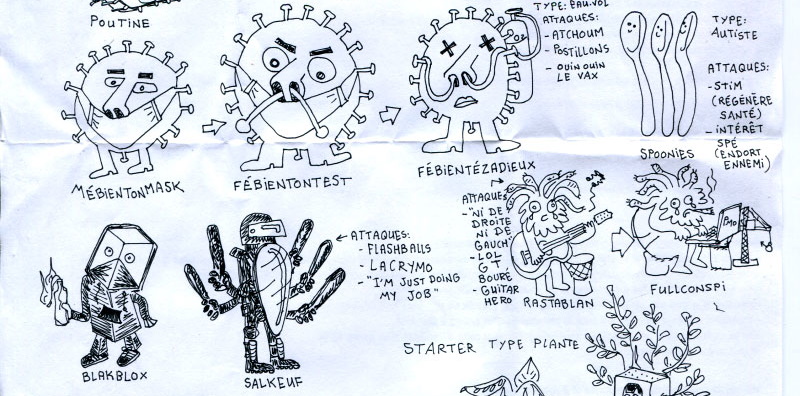 POUTINE
MÉBIENTONMASK
FÉBIENTONTEST
TYPE: EAU.VOL
ATTAQUES:
- ATCHOUM
- POSTILLONS
- OUIN OUIN
LE VAX
FÉBIENTÉZADIEUX
TYPE:
AUTISTE
ATTAQUES:
- STIM
(RÉGÉNÈRE
SANTÉ)
- INTÉRÊT
SPÉ
(ENDORT
ENNEMI)
SPOONIES
BLAKBLOX
SALKEUF
ATTAQUES:
- FLASHBALLS
- LACRYMO
- "I'M JUST DOING
MY JOB"
ATTAQUES
- "NI DE
DROITE
NI DE
GAUCH
- LOL
G T
BOURÉ
- GUITAR
HERO
RASTABLAN
FULLCONSPI
STARTER TYPE PLANTE